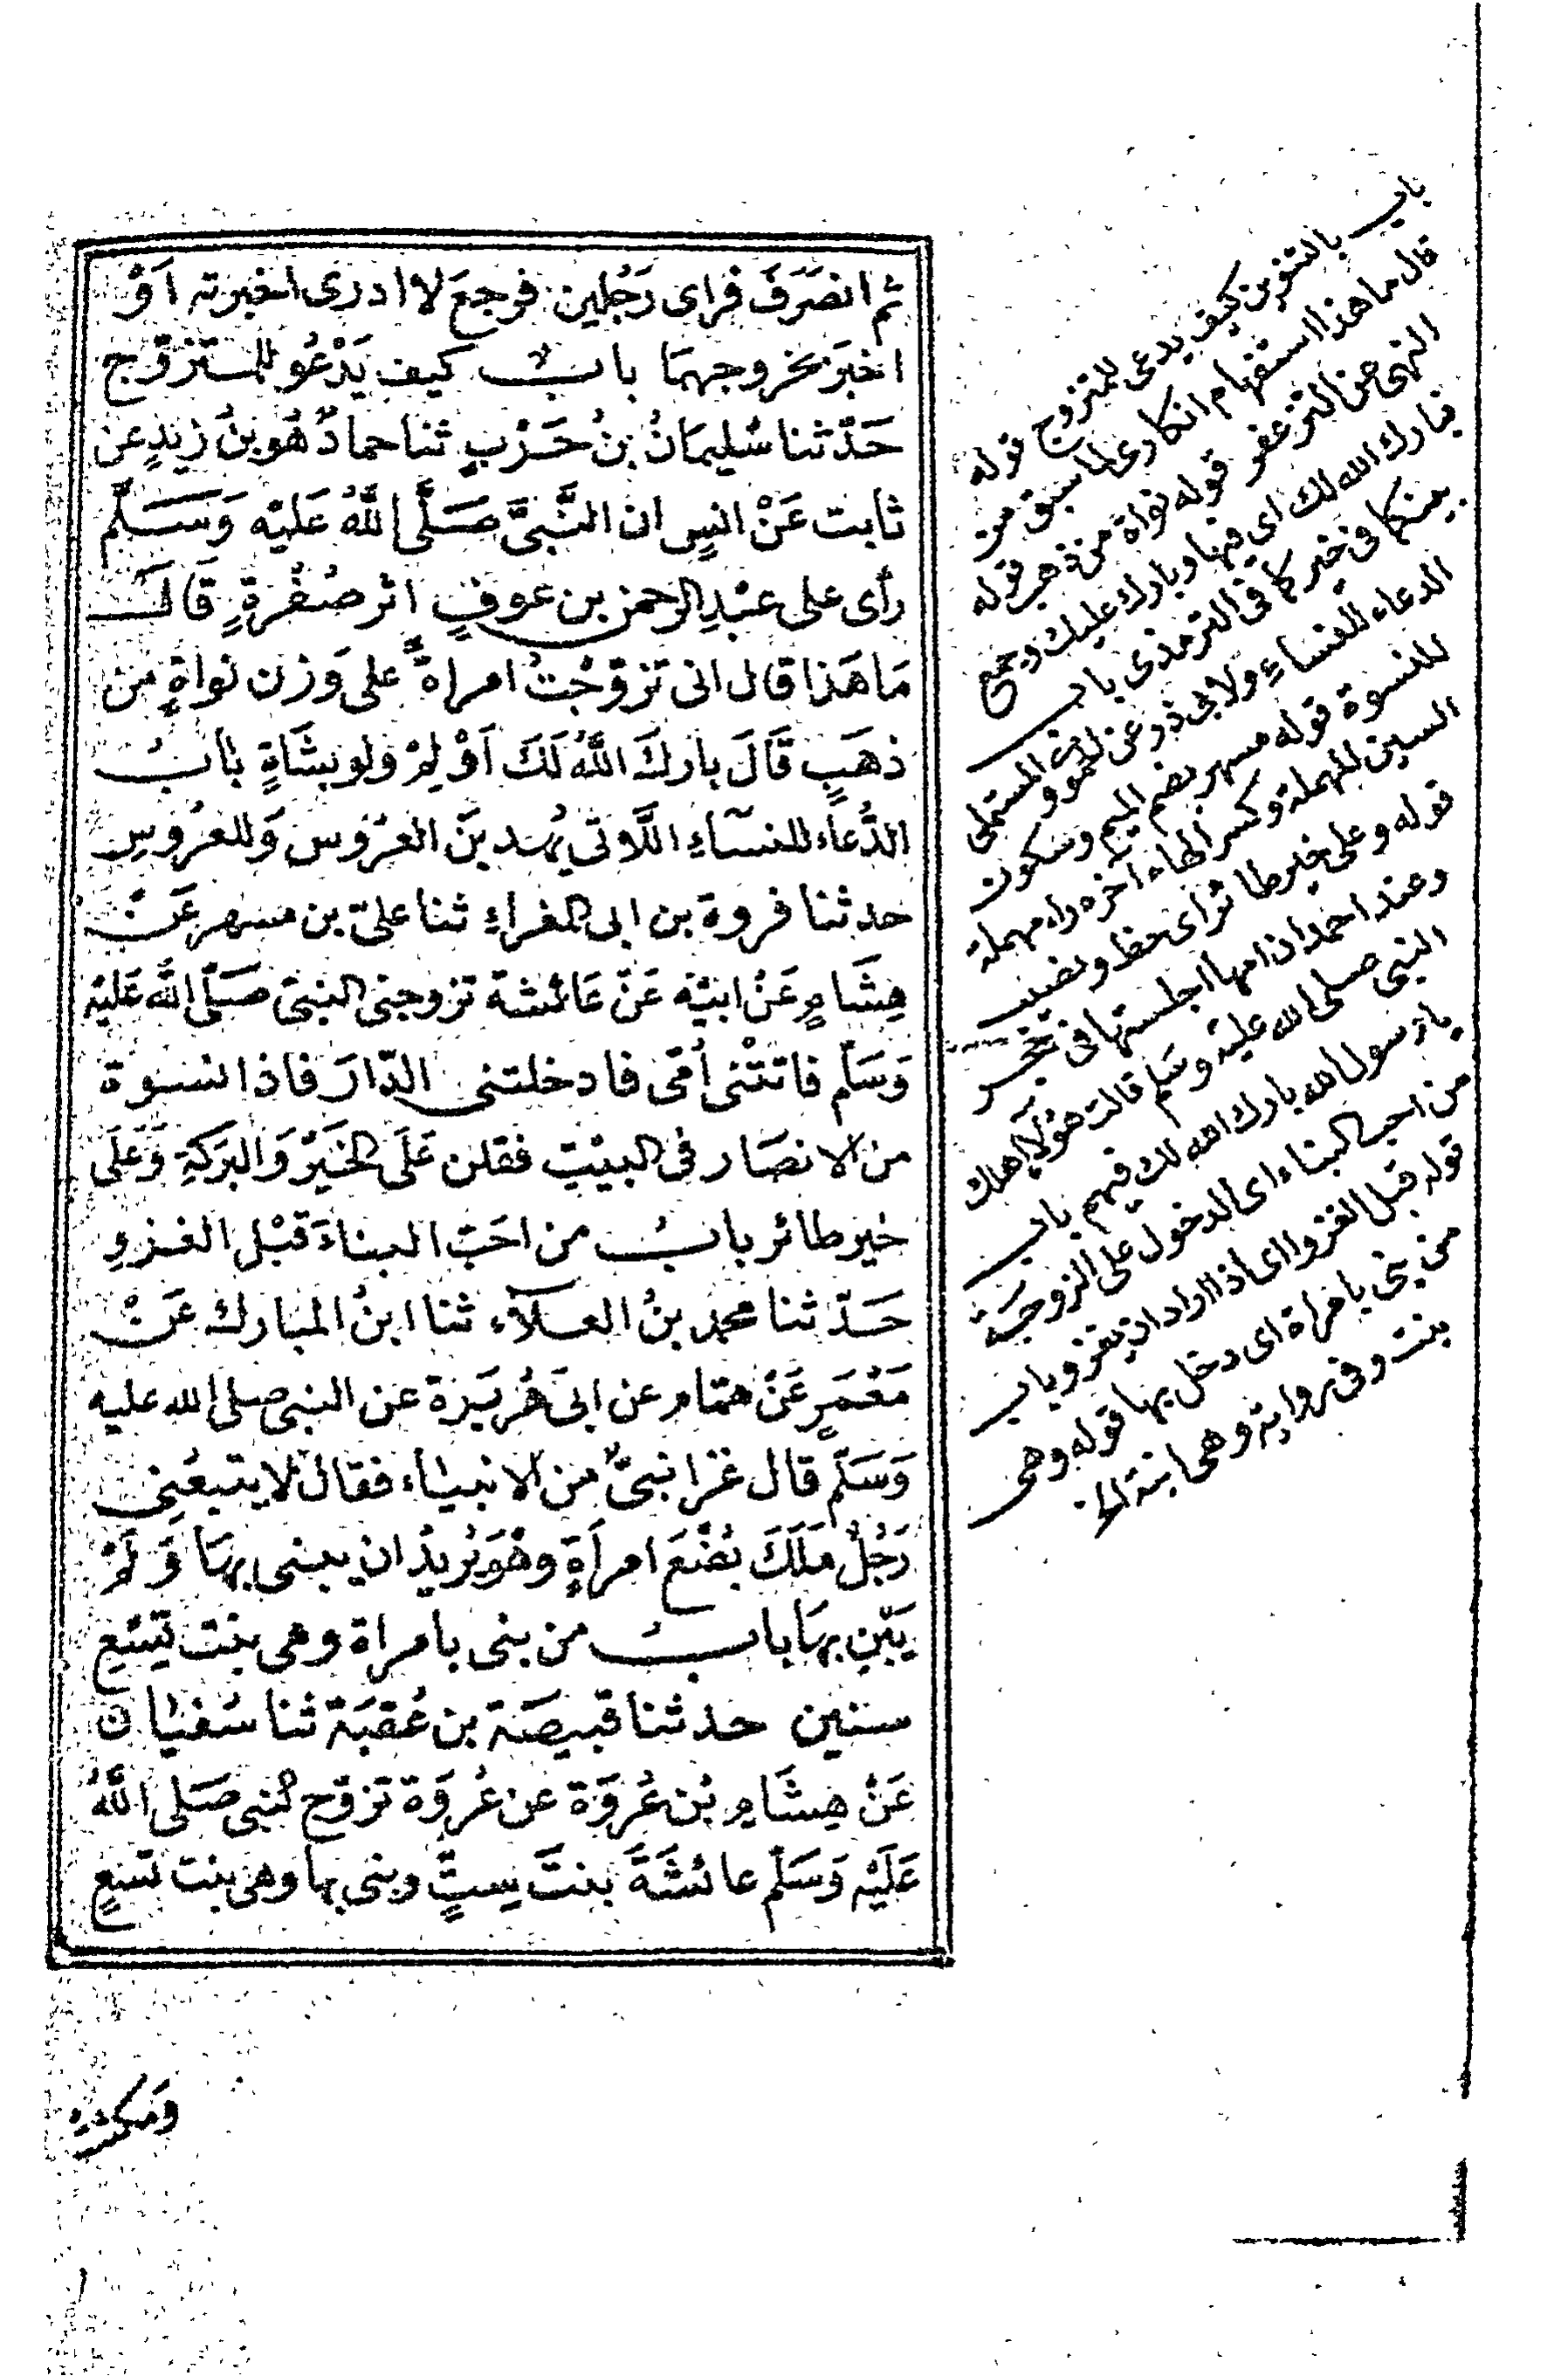 ثم انصَرَفَ فراى رَجُلين فوجعَ لا ادرى اخبرته اَوْ
اخبَر بخروجهمَا بابٌ كيف يَدْعُو للمتَزوّج
حَدّثنا سُليمَانُ بنُ حَرْبٍ ثنا حمادٌ هُو بنُ زيدٍ عن
ثابت عَنْ انسٍ ان النَّبىَّ صَلَّى اللَّهُ عَليْه وَسَلَّم
رأى على عبْدِ الرحمن بن عوفٍ اثر صُفْرةٍ قَالَ
مَا هَذا قال انى تزوّجْتُ امراةً على وَزن نواةٍ من
ذهَبٍ قَالَ بارك اللَّهُ لَكَ اَوْلِمْ ولو بشَاةٍ بابُ
الدُّعاء للنسآءِ اللَّاتى يُهدينَ العرُوس وَللعرُوسِ
حدثنا فروة بن ابى المغراءِ ثنا علىّ بن مسهر عَنْ
هِشَامٍ عَنْ ابيْه عَنْ عَائشة تزوجنى النبىّ صَلّى اللَّه عَليْه
وَسَلّم فاتتْنى اُمّى فادخلتنى الدّارَ فاذا نسوة
من الانصَار فى البيْتِ فقلن عَلَى الخَيْر وَالبَركَةِ وَعَلَى
خير طائر بابُ من احَبّ البناءَ قبْل الغزوِ
حَدّثنا محمد بنُ العلآء ثنا ابنُ المبارك عَنْ
مَعْمَرٍ عَنْ همّام عن ابى هُريَرة عن النبى صلى الله عليه
وَسَلّم قال غزا نبىٌّ من الانبياء فقال لا يتبعْنِى
رَجُلٌ مَلَكَ بُضْعَ امرأَةٍ وهُوَ يُريدُ ان يبنى بهَا وَلَمْ
يَبْنِ بهَا بابُ من بنى بامراة وهى بنت تِسْعِ
سنين حدثنا قبيصَة بن عُقبَة ثنا سُفيَان
عَنْ هِشَام بْن عُروَة عن عُروَة تزوّج النبى صَلى اللَّهُ
عَلَيْه وَسَلّم عائشَةَ بنتَ سِتٍّ وبنى بها وهى بنت تسْعٍ
ومكثت
باب بالتنوين كيف يدعى للمتزوج قوله
قال ما هذا استفهام انكارى لما سبق من
النهى عن التزعفر قوله نواة من ذهب قوله
فبارك الله لك اى فيها وبارك عليك وجمع
بينكما فى خير كما فى الترمذى باب
الدعاء للنساء ولابى ذر عن الحموى والمستملى
للنسوة قوله مسهر بضم الميم وسكون
السين المهملة وكسر الهاء آخره راء مهملة
قوله وعلى خير طائر اى حظ ونصيب
وعند احمد ان امها اجلستها فى حجر
النبى صلى الله عليه وسلم قالت هؤلاء اهلك
يا رسول الله بارك الله لك فيهم باب
من احب البناء اى الدخول على الزوجة
قوله قبل الغزو اى اذا اراد ان يغزو باب
من بنى بامراة اى دخل بها قوله وهى
بنت وفى رواية وهى ابنة الخ